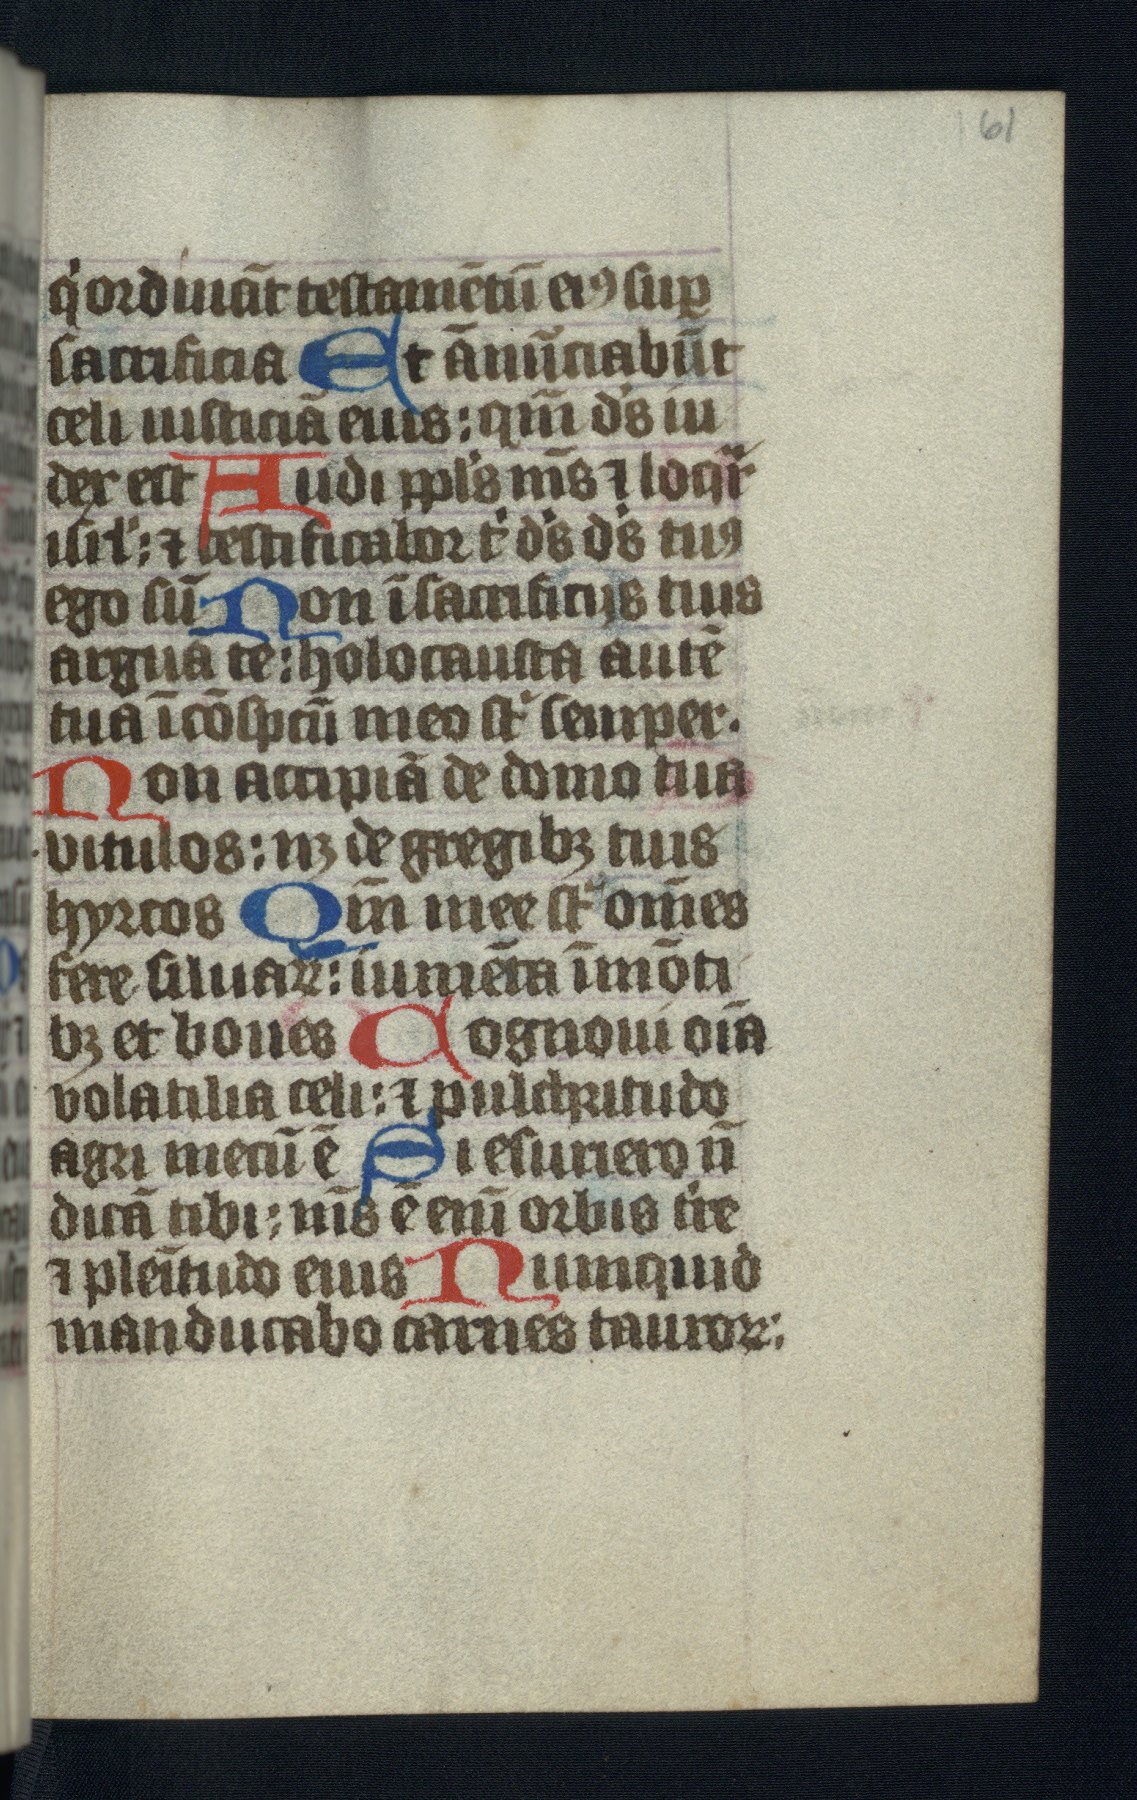 61
qͥ ordināt testamētū eiꝰ suꝑ
sacrificia Et ānūciabūt
celi iusticiā eius: qm̄ dˢs iu
dex est Audi ppl's mˢ ⁊ loqr̄
isrl': ⁊ testificabor tͥ dˢs dˢs tuꝰ
ego sū Non ī sacrificijs tuis
arguā te: holocausta autē
tua ī cōspctū meo st᷑ semper.
Non accipiā de domo tua
vitulos: nꝫ de gregibꝫ tuis
hyrcos Qm̄ mee st᷑ om̄es
fere siluaꝝ: iumēta ī mōti
bꝫ et boues Cognoui oīa
volatilia celi: ⁊ pulchritudo
agri mecū ē Si esuriero n̄
dicā tibi: m̄s ē eni᷑ orbis t're
⁊ pleītudo eius Numquid
manducabo carnes tauroꝝ: